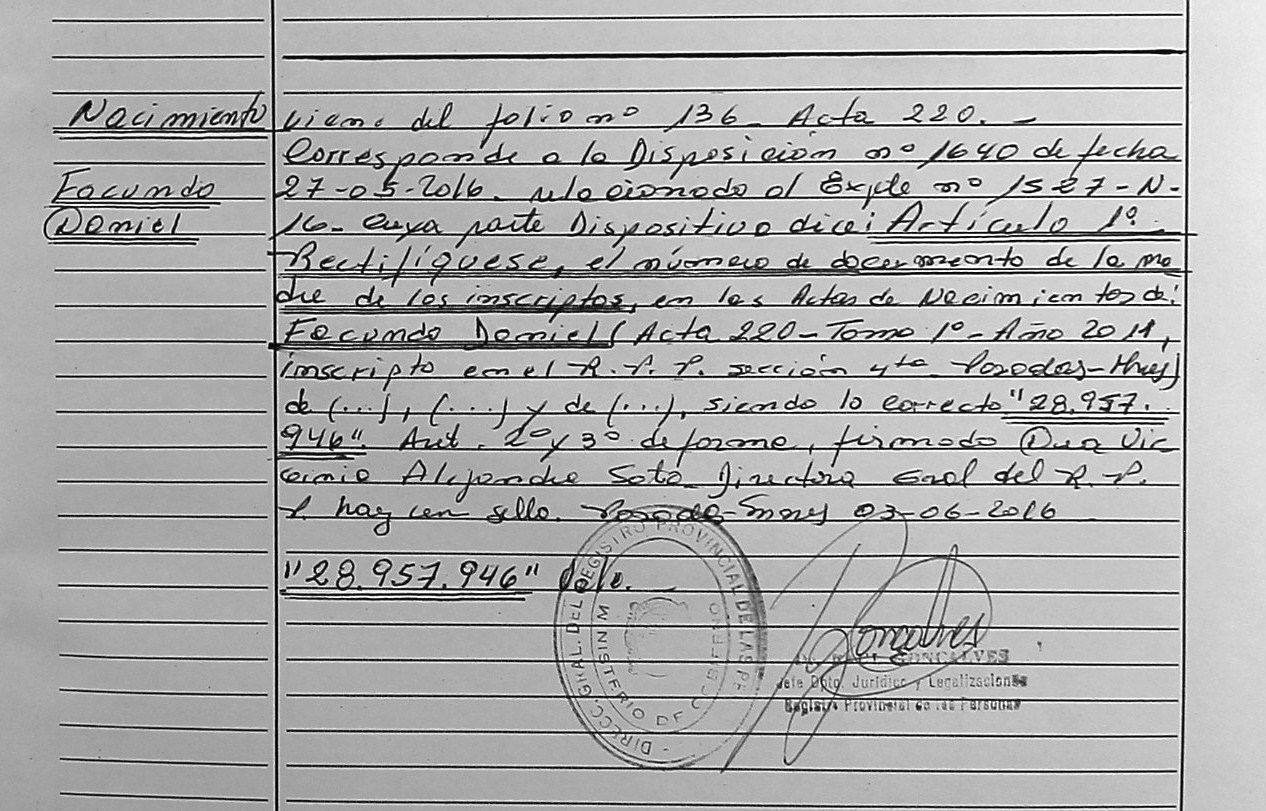 Nacimiento
Facundo
Daniel
viene del folio nº 136 - Acta 220. -
Corresponde a la Disposición nº 1640 de fecha
27-05-2016. relacionado al Expte nº 1527-N-
16- cuya parte Dispositiva dice: Artículo 1º.
Rectifíquese, el número de documento de la ma
dre de los inscriptos, en las Actas de Nacimientos de:
Facundo Daniel (Acta 220-Tomo 1º-Año 2011,
inscripto en el R.P.P. sección 4ta Posadas-Mnes)
de (...), (...) y de (...), siendo lo correcto "28.957.
946". Art. 2º y 3º de forma, firmado Dra Vir
ginia Alejandra Soto Directora Gral del R.P.
P. hay un sello. Posadas-Mnes 03-06-2016
"28.957.946" Vale.
DIRECC. GRAL. DEL REGISTRO PROVINCIAL DE LAS
MINISTERIO DE GOBIERNO
GONCALVES
Jefe Dpto. Jurídico y Legalizaciones
Registro Provincial de las Personas